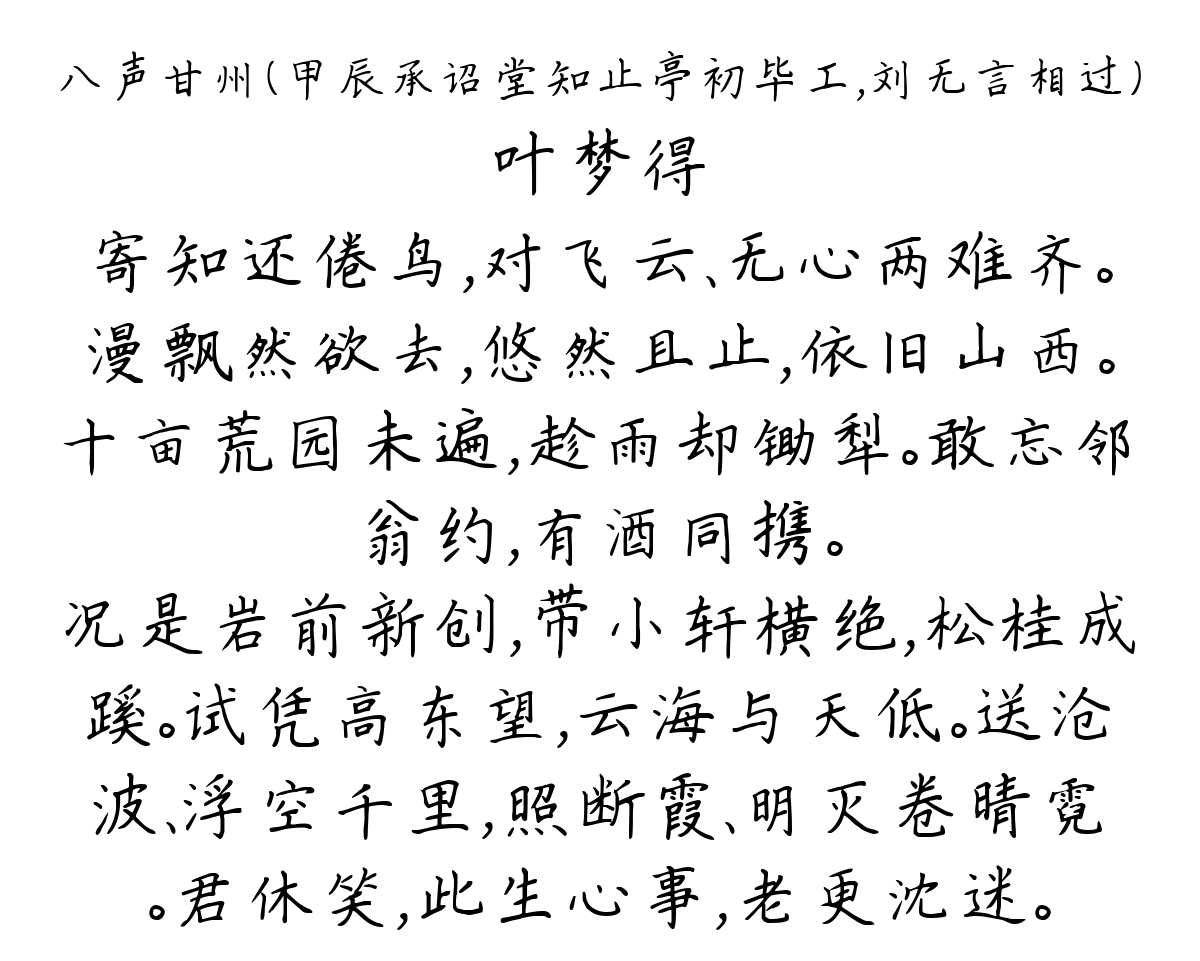 八声甘州(甲辰承诏堂知止亭初毕工,刘无言相过)
叶梦得
寄知还倦鸟,对飞云、无心两难齐。
漫飘然欲去,悠然且止,依旧山西。
十亩荒园未遍,趁雨却锄犁。敢忘邻
翁约,有酒同携。
况是岩前新创,带小轩横绝,松桂成
蹊。试凭高东望,云海与天低。送沧
波、浮空千里,照断霞、明灭卷晴霓
。君休笑,此生心事,老更沈迷。